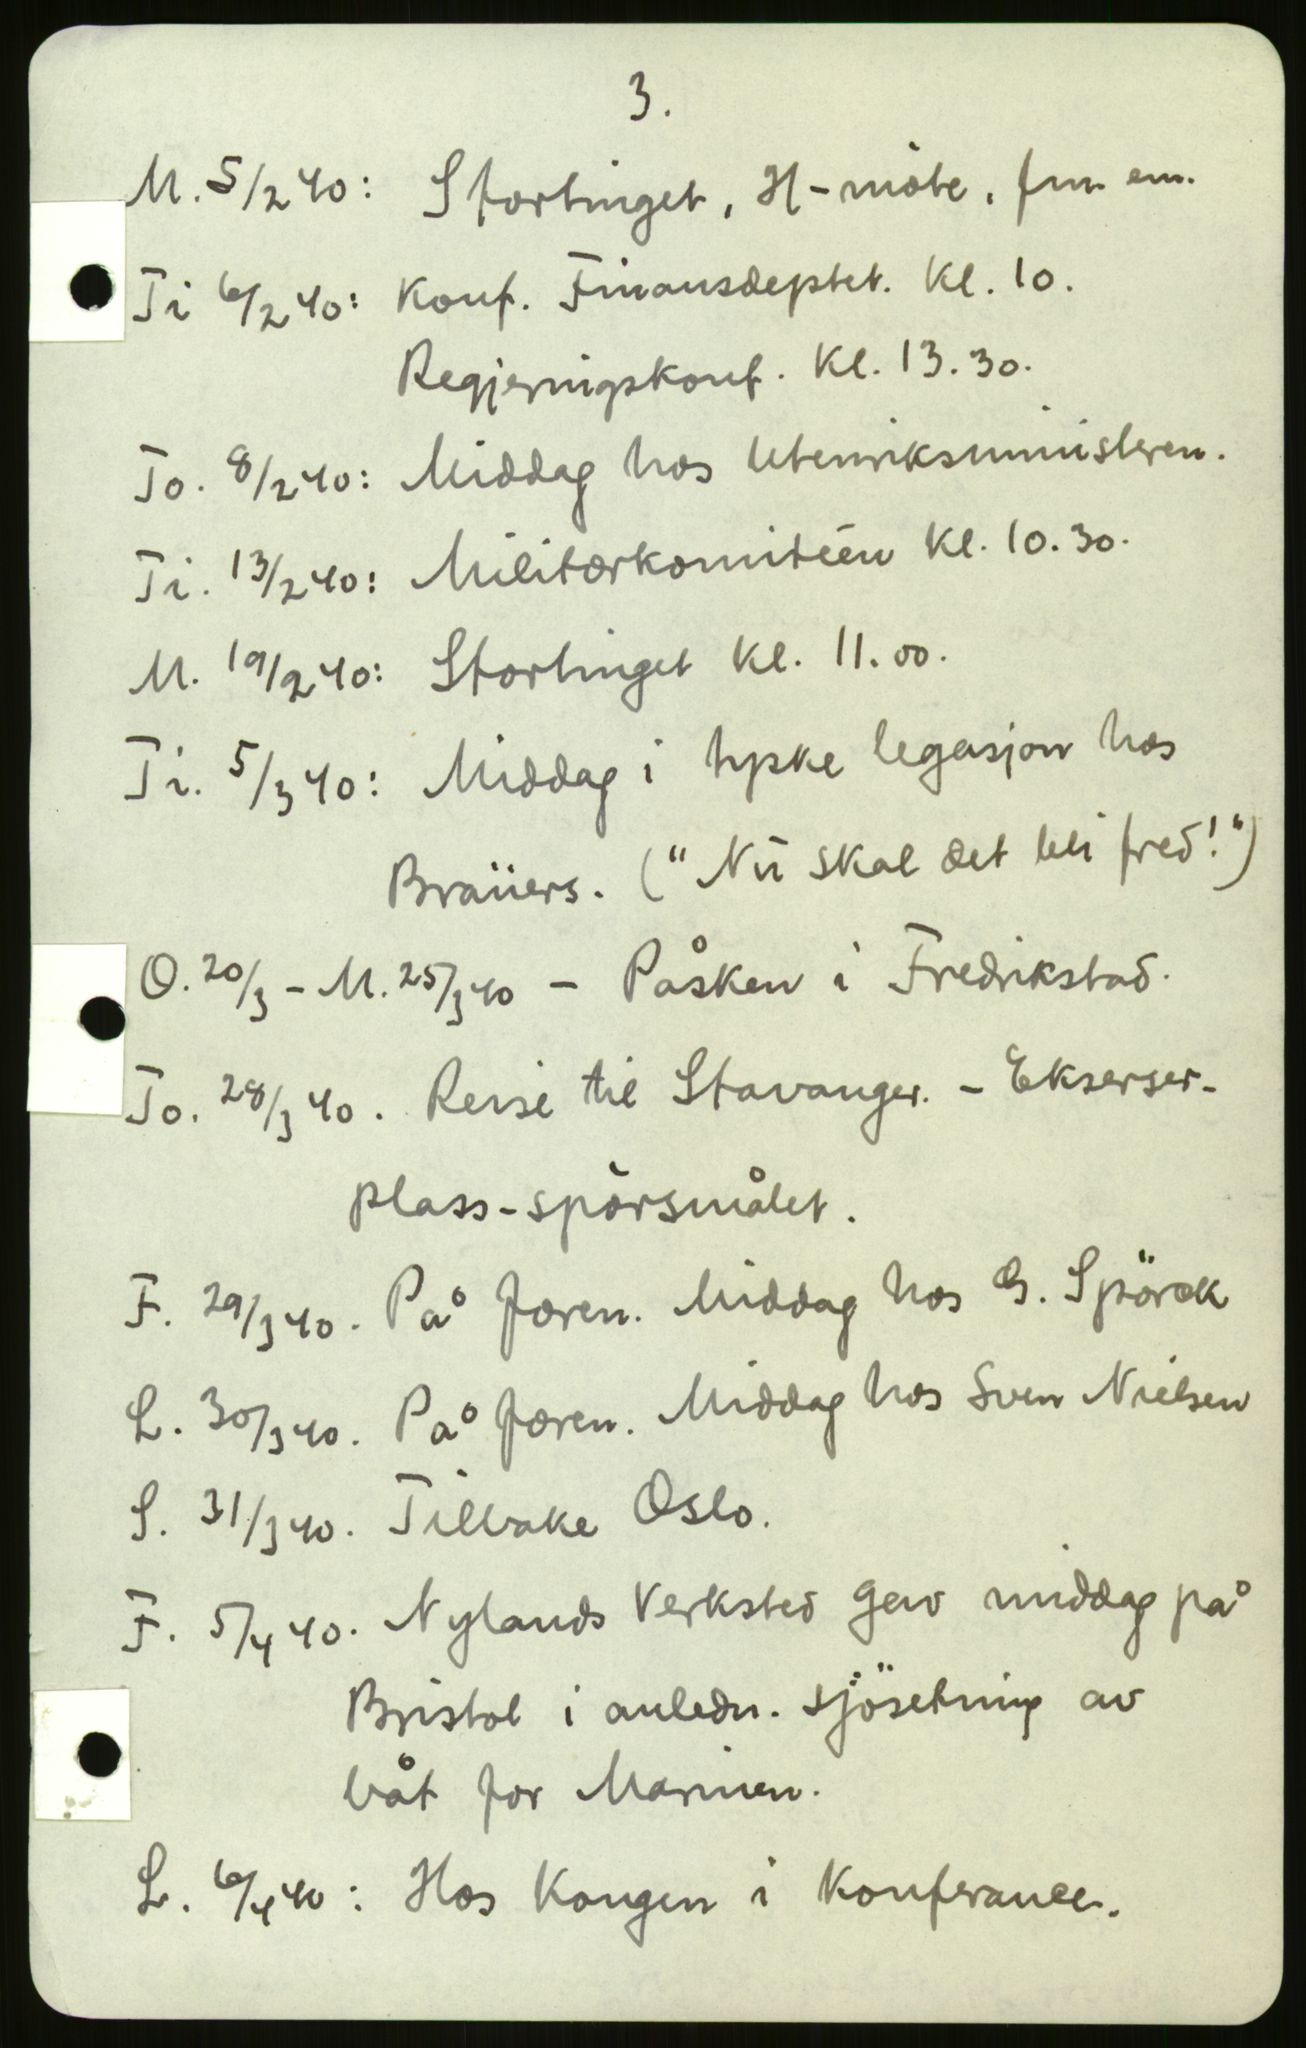 3.
M. 5/2 40: Stortinget, H-möte, fm em.
Ti 6/2 40: Konf. Finansdeptet. kl. 10.
Regjeringskonf. kl. 13.30.
To. 8/2 40: Middag hos Utenriksministeren.
Ti. 13/2 40: Militærkomitéen kl. 10.30.
M. 19/2 40: Stortinget kl. 11.00.
Ti. 5/3 40: Middag i tyske legasjon hos
Bräuers. ("Nu skal det bli fred!")
O. 20/3 - M. 25/3 40 - Påsken i Fredrikstad.
To. 28/3 40. Reise til Stavanger. - Ekserser-
plass-spörsmålet.
F. 29/3 40. På Jæren. Middag hos G. Spörck
L. 30/3 40. På Jæren. Middag hos Sven Nielsen
S. 31/3 40. Tilbake Oslo.
F. 5/4 40. Nylands Verksted gav middag på
Bristol i anledn. sjösetning av
båt for Marinen.
L. 6/4 40: Hos Kongen i Konferance.